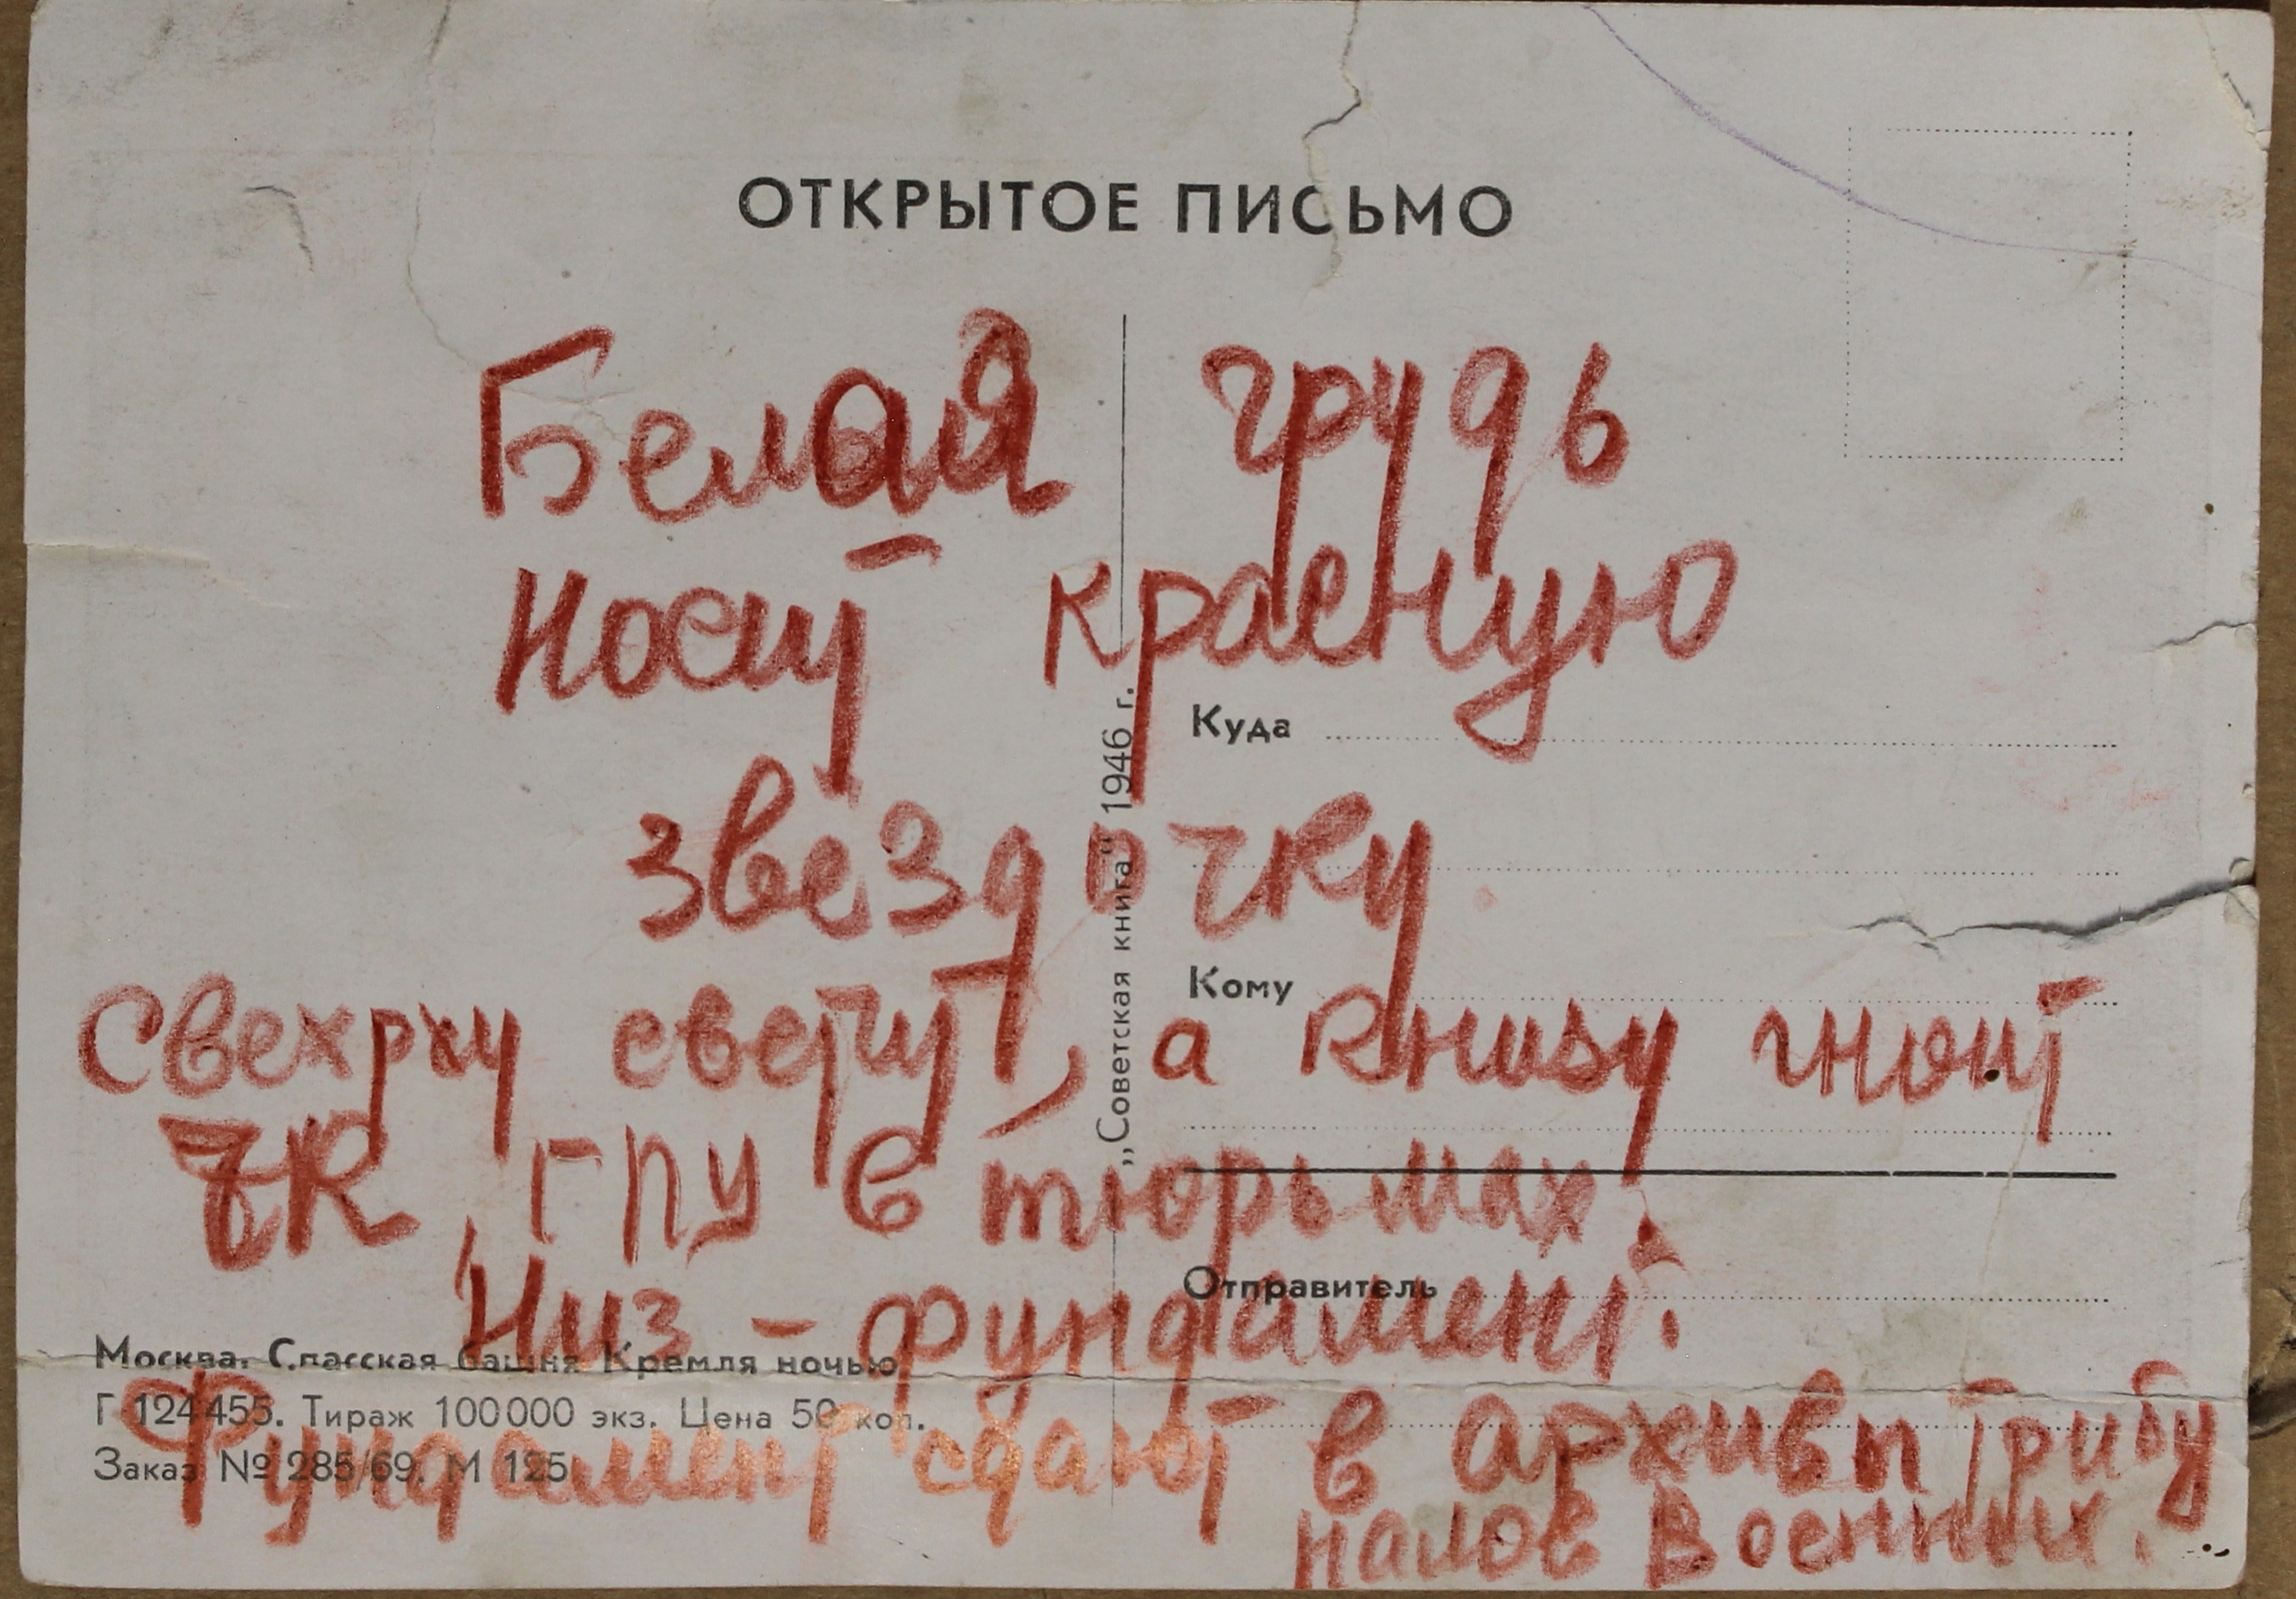 ОТКРЫТОЕ ПИСЬМО
Белая грудь
носит красную
звездочку
Сверху светит, а книзу гноит
ЧК, ГПУ в тюрьмах.
Низ - фундамент.
Фундамент сдают в архивы трибу
налов военных.
Куда
Кому
Отправитель
„Советская книга“ 1946 г.
Москва. Спасская башня Кремля ночью
Г 124455. Тираж 100000 экз. Цена 50 коп.
Заказ № 285/69. М 125